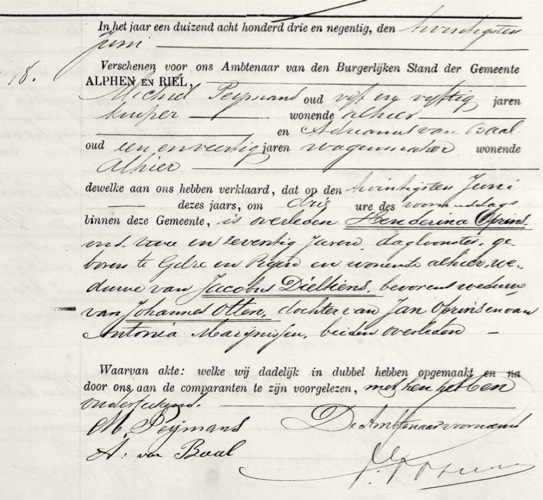 In het jaar een duizend acht honderd drie en negentig, den twintigsten
Juni
Verschenen voor ons Ambtenaar van den Burgerlijken Stand der Gemeente
18.
ALPHEN EN RIEL,
Michiel Peijmans oud vijf en vijftig jaren
kuiper wonende alhier
en Adrianus van Baal
oud een en veertig jaren wagenmaker wonende
Alhier
dewelke aan ons hebben verklaard, dat op den twintigsten Juni
dezes jaars, om drie ure des voormiddags
binnen deze Gemeente, is overleden Henderina Oprins
oud twee en zeventig Jaren, dagloonster, ge-
boren te Gilze en Rijen en wonende alhier, we-
duwe van Jacobus Dielkens, bevorens weduwe
van Johannes Otten, dochter van Jan Oprins en van
Antonia Marijnissen, beiden overleden
Waarvan akte: welke wij dadelijk in dubbel hebben opgemaakt en na
door ons aan de comparanten te zijn voorgelezen, met hen hebben
onderteekend.
M. Peijmans De Ambtenaar voornoemd
A: van Baal